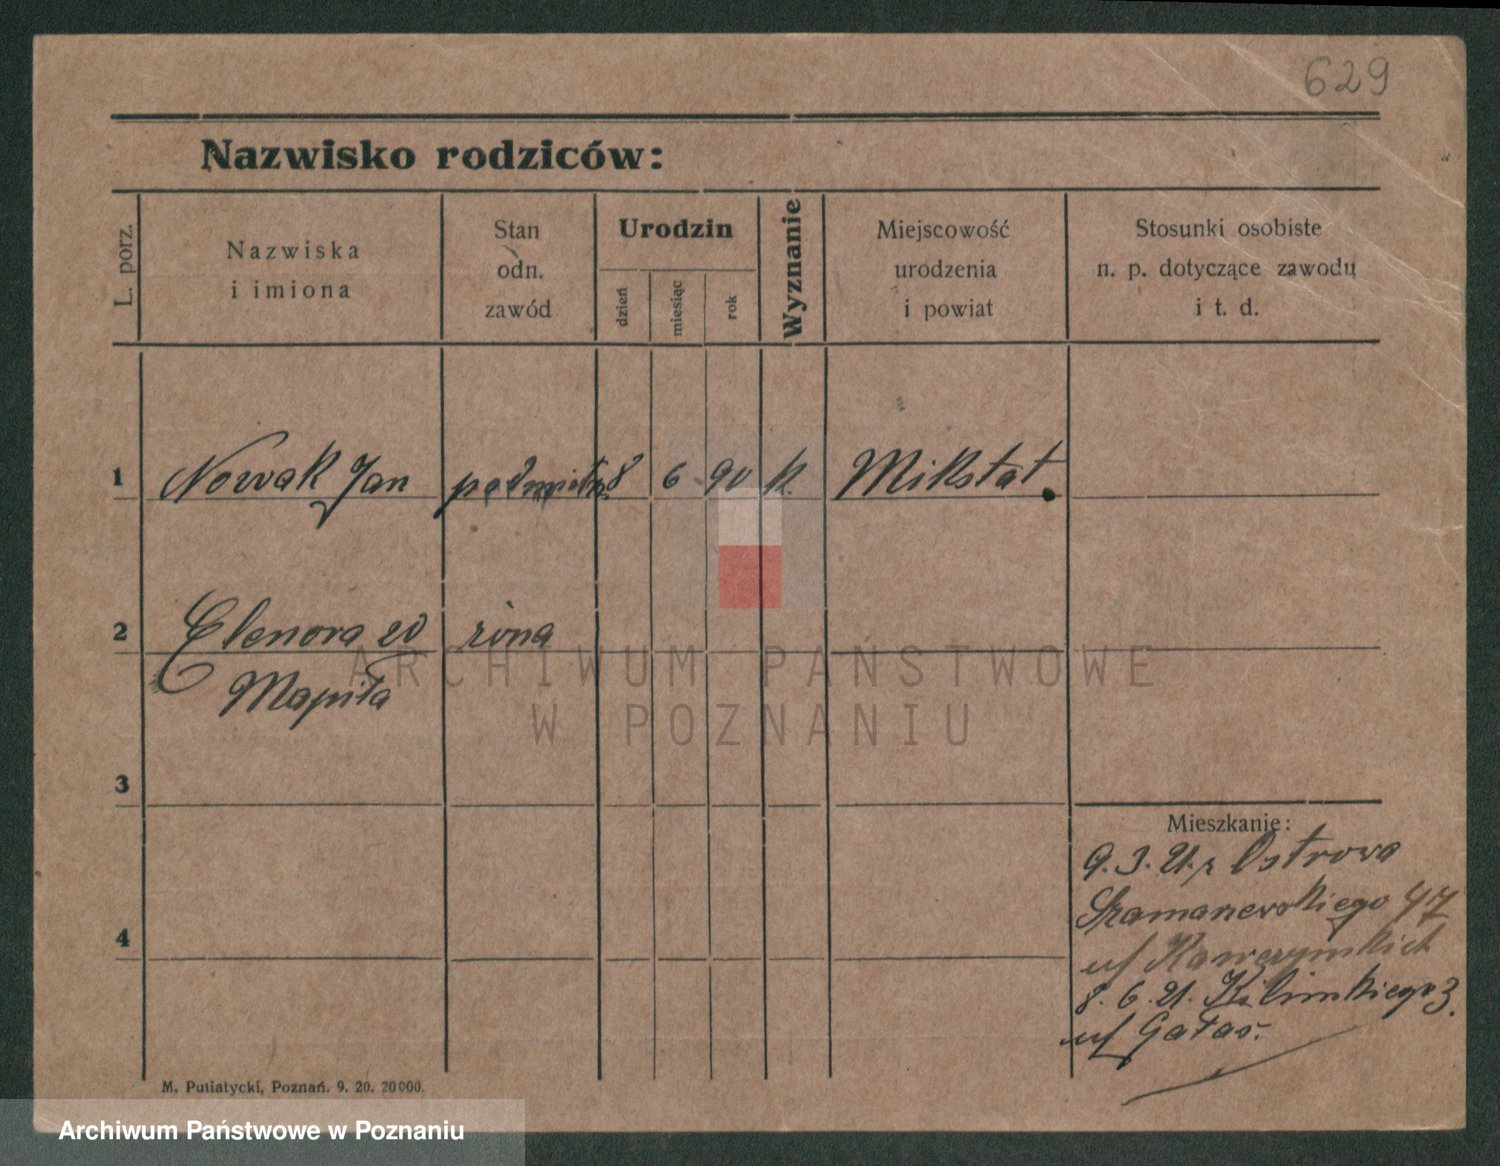 629
Nazwisko rodziców:
L. porz.
Nazwiska
i imiona
Stan
odn.
zawód
Urodzin
dzień
miesiąc
rok
Wyznanie
Miejscowość
urodzenia
i powiat
Stosunki osobiste
n. p. dotyczące zawodu
i t. d.
1 Nowak Jan 8 6 90 k. Mikstat.
2 Elenora żona
Mapiła
3
4
Mieszkanie:
9.3.21. z Ostrowa
47
8.6.21. 3.
Gałas.
M. Putiatycki, Poznań. 9. 20. 20000.
ARCHIWUM PAŃSTWOWE
W POZNANIU
Archiwum Państwowe w Poznaniu